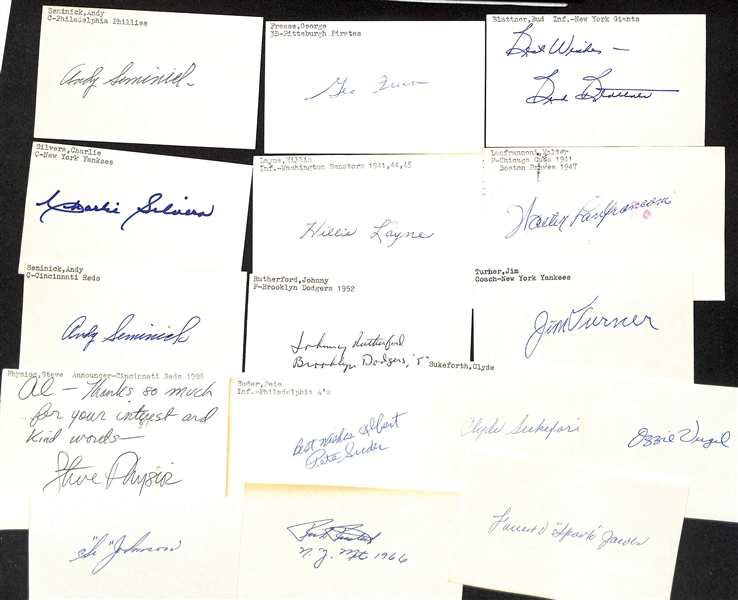 Seminick,Andy
C-Philadelphia Phillies
Andy Seminick
Freese,George
3B-Pittsburgh Pirates
Geo Freese
Blattner,Bud Inf.-New York Giants
Best Wishes —
Bud Blattner
Silvera,Charlie
C-New York Yankees
Charlie Silvera
Layne,Hillis
Inf.-Washington Senators 1941,44,45
Hillis Layne
Lanfranconi,Walter
P-Chicago Cubs 1941
Boston Braves 1947
Walter Lanfranconi
Seminick,Andy
C-Cincinnati Reds
Andy Seminick
Rutherford,Johnny
P-Brooklyn Dodgers 1952
Johnny Rutherford
Brooklyn Dodgers, '5
Turner,Jim
Coach-New York Yankees
Jim Turner
Physioc,Steve Announcer-Cincinnati Reds 1986
Al — Thanks, so much
for your interest and
kind words—
Steve Physioc
Suder,Pete
Inf.-Philadelphia A's
Best Wishes Albert
Pete Suder
Sukeforth,Clyde
Clyde Sukefor
Ozzie Virgil
"Si" Johnson
N.Y. Met 1966
Forrest V "Spook" Jacobs